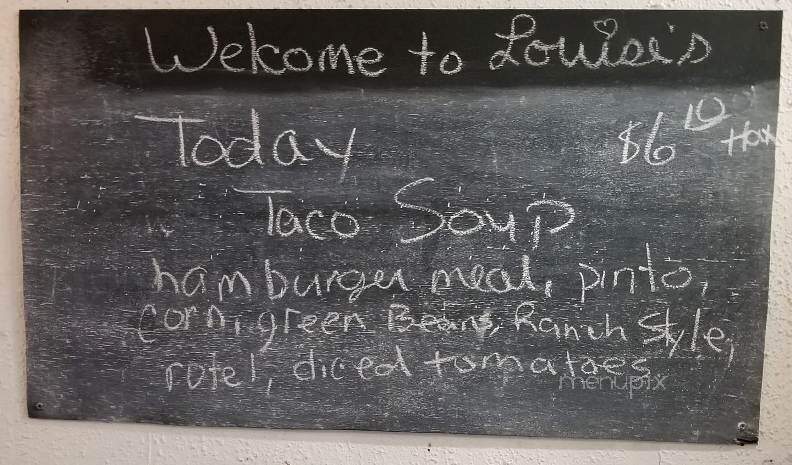 Welcome to Louise's
Today $6 10 +tax
Taco Soup
hamburger meat, pinto,
corn, green Beans, Ranch Style,
rotel, diced tomatoes
menupix